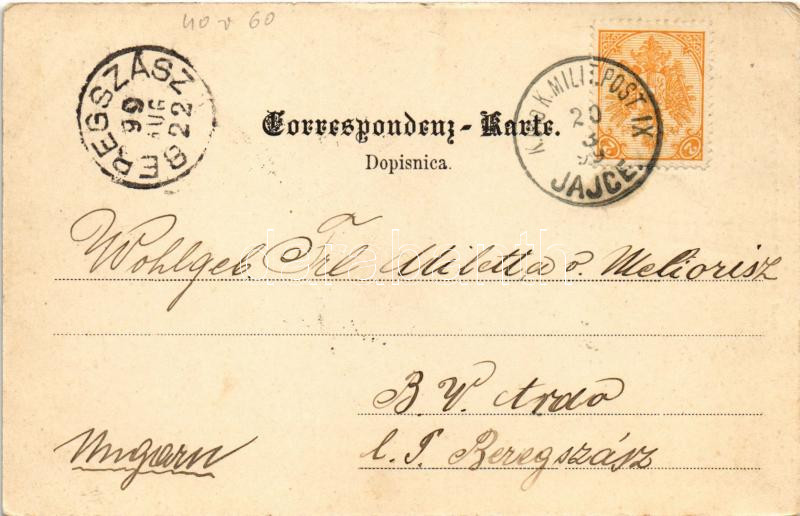 40 v 60
BEREGSZÁSZ
99
AUG
22
K.u.K.MILIT.POST IX
20
8
99
JAJCE.
2
Correspondenz - Karte.
Dopisnica.
Wohlgeb. Frl. Miletta v. Meliorisz
B. V. Ardó
Ungarn
l. P. Beregszász
darabanth